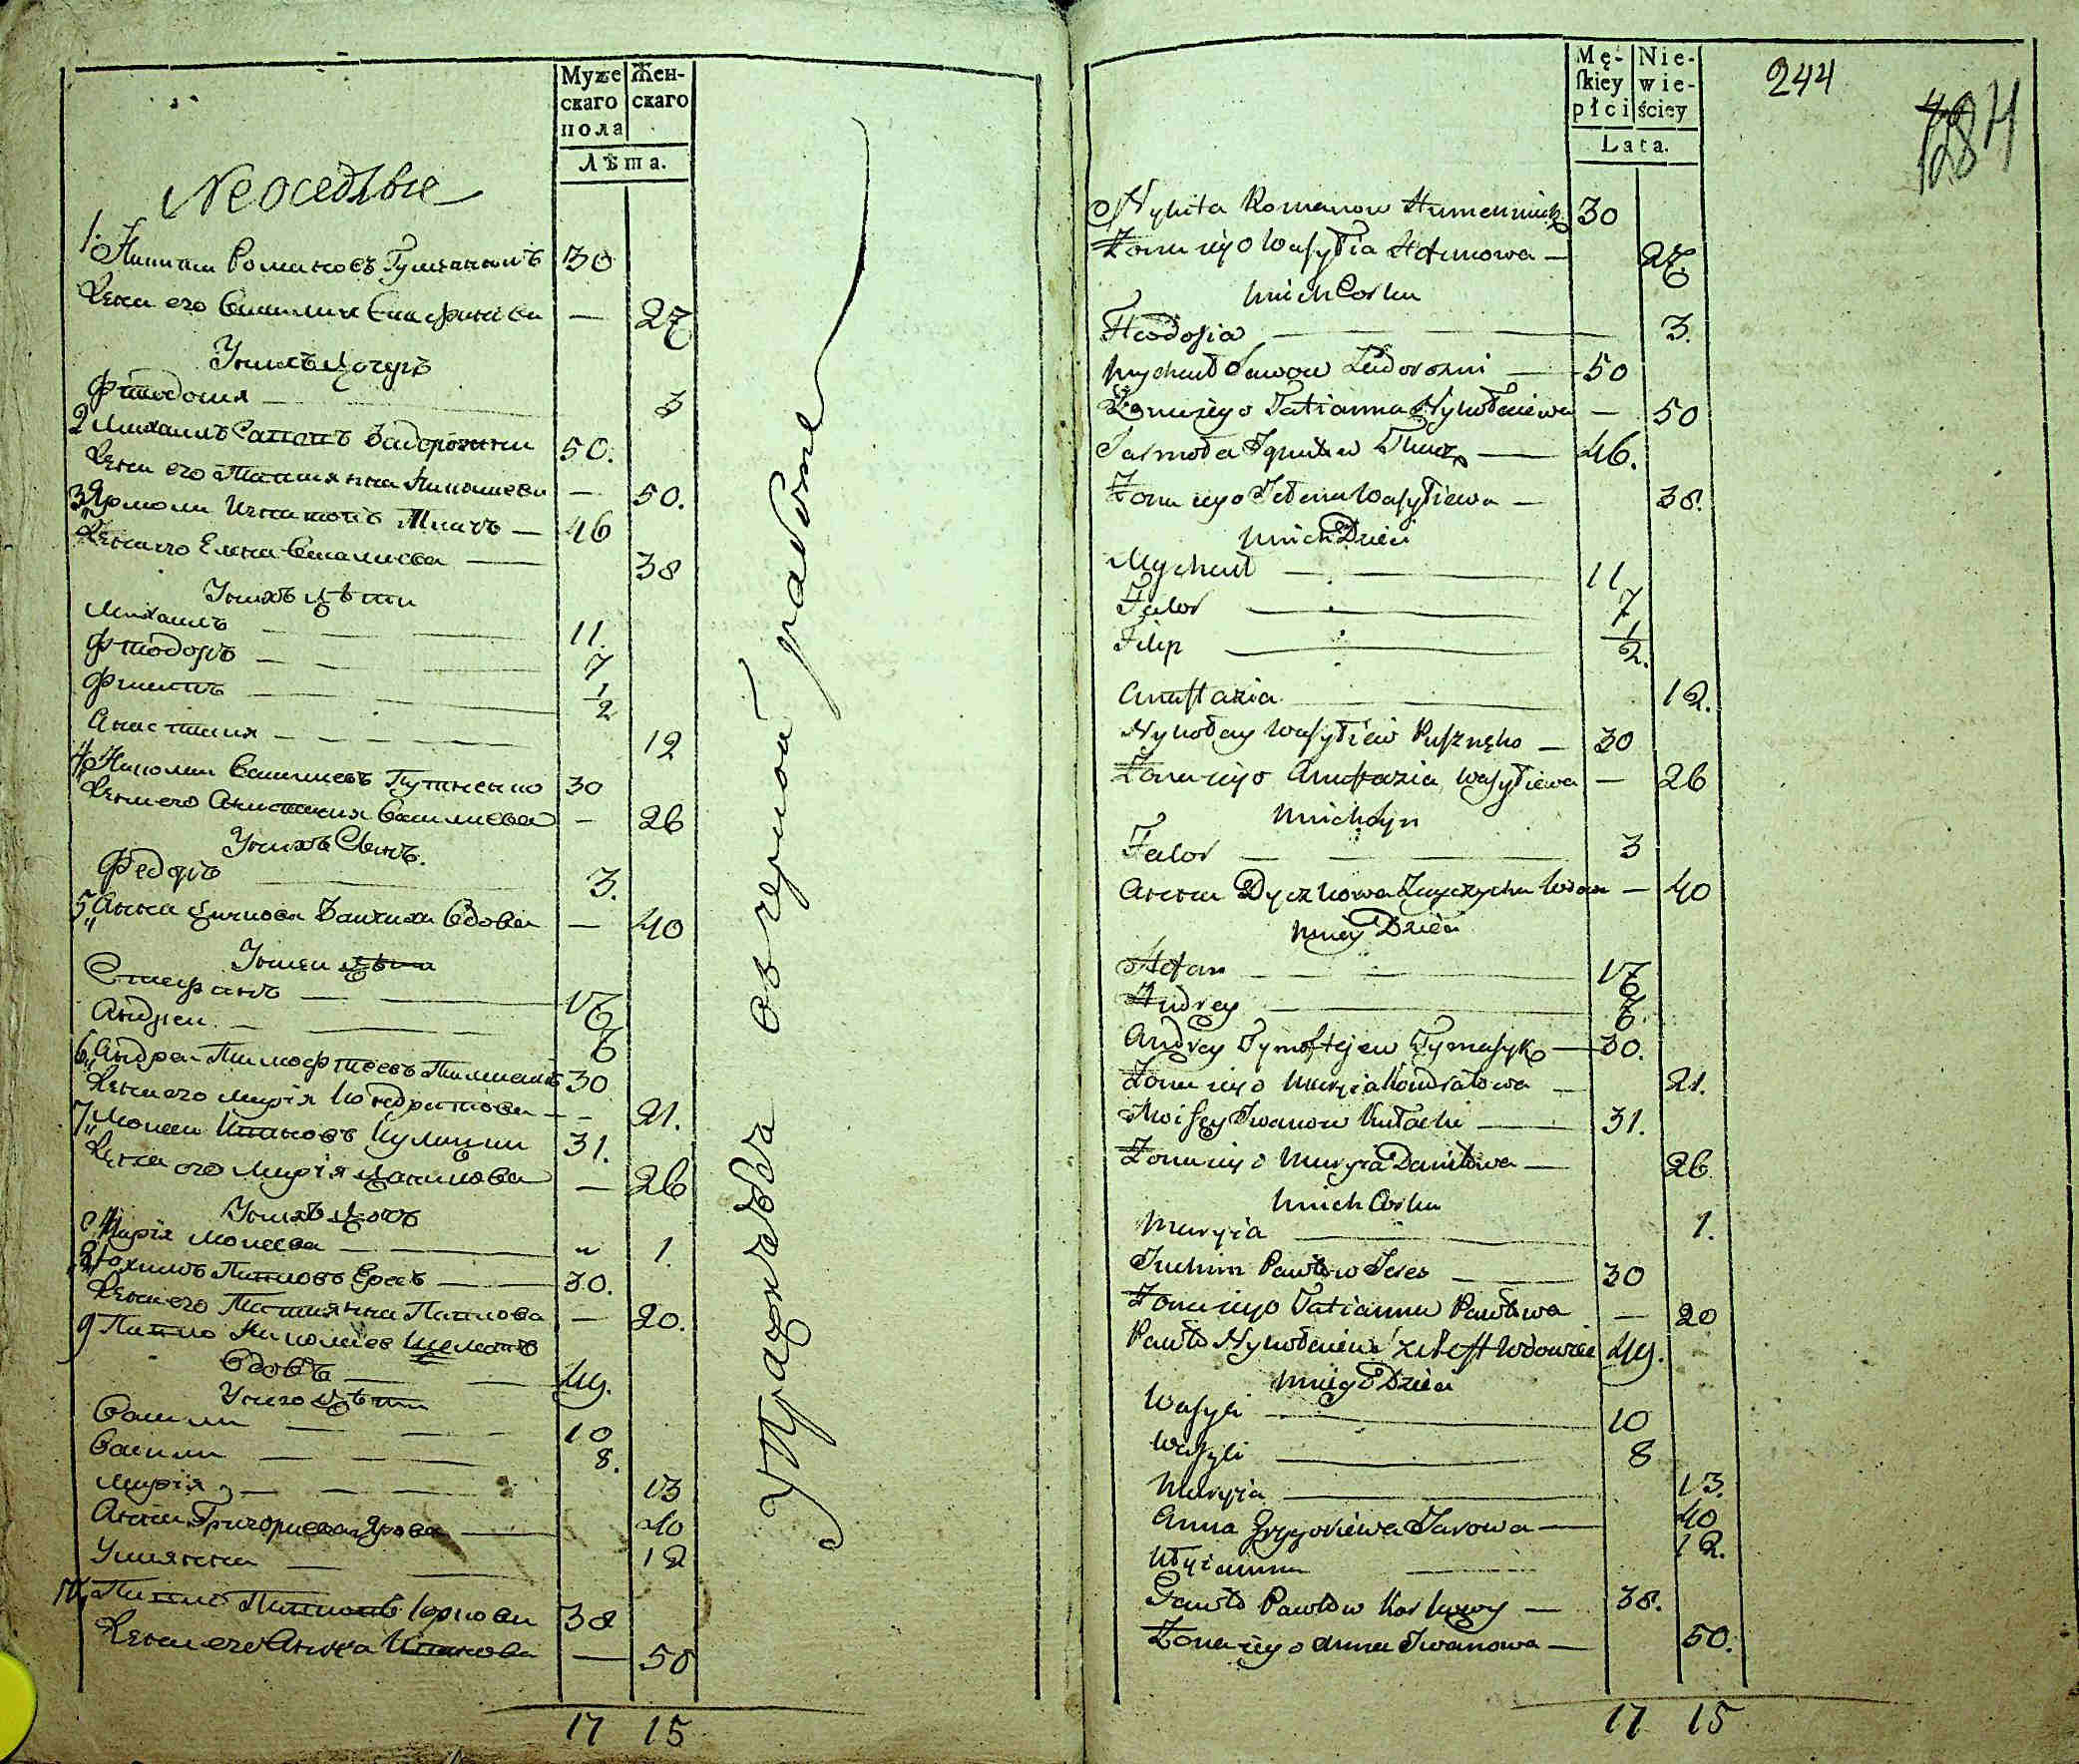 Муже
скаго
пола
Жен-
скаго
Лѣта.
Неоседлые
1. Никита Романовъ Гуменникъ 30
Жена его Василия Стефанова — 27
У нихъ дочерь
Фтеодосия — 3
2 Михаилъ Савовъ Задорожни 50.
Жена его Татиянна Николаева — 50.
3 Ярмола Игнатовъ Ткачъ — 46
Жена его Елена Василиева — 38
У нихъ дѣти
Михаилъ — 11.
Фтеодоръ — 7
Филипъ — 1/2
Анастасия — 12
4 Николай Василиевъ Пушненко 30
Жена его Анастасия Василиева — 26
У нихъ Сынъ.
Федоръ 3.
5 Анна Дичкова Заичиха Вдова — 40
У неи дѣти
Стефанъ — 17
Андреи — 7
6 Андреи Тимофтеевъ 30
Жена его Марія Кондратова — 21.
7 Моисеи Ивановъ Кулачки 31.
Жена его Марія Данилова — 26
У нихъ дочь
Марія Моисеева — " 1.
8 Юхимъ Павловъ — 30.
Жена его Татиянна Павлова — 20.
9 Павло Николаевъ
Вдовъ — 49.
У него дѣти
Васили — 10
Васили — 8.
Марія — 13
Анна Григориева — 40
Улиянна — 12
10 Павло Павловъ 38
Жена его Анна Иванова — 50
17 15
У Працонавова об черной работе
Mę-
ſkiey
płci
Nie-
wie-
ściey
Lata.
244
184
Nykita Romanow Humenniuk 30
Żona iego Wasylia Stefanowa — 27
U nich Corka
Fteodosia — 3.
Mychał Sawow Zadorożni — 50
Żona iego Tatianna Nykołaiewa — 50
Jarmoła Ignatow Tkacz — 46.
Żona iego Jełena Wasyliewa — 38.
U nich Dzieci
Mychał — 11
Fedor — 7
Filip — 1/2.
Anastazia — 12.
Nykołay Wasyliew Puszneńko — 30
Żona iego Anastazia Wasyliewa — 26
U nich Syn
Fedor — 3
Anna Dyczkowa Zayczycha Wdowa — 40
U niey Dzieci
Stefan — 17
Andrey — 7.
Andrey Tymoftejew 30.
Żona iego Maryia Kondratowa — 21.
Moisey Iwanow Kułaczki — 31.
Żona iego Maryia Daniłowa — 26
U nich Corka
Maryia — 1.
Juchim Pawłow — 30
Żona iego Tatianna Pawłowa — 20
Pawło Nykołaiew Wdowiec 49.
U niego Dzieci
Wasyli — 10
Wasyli — 8
Maryia — 13.
Anna Grygoriewa — 40
Ulyianna 12.
Pawło Pawłow — 38.
Żona iego Anna Iwanowa — 50.
17 15